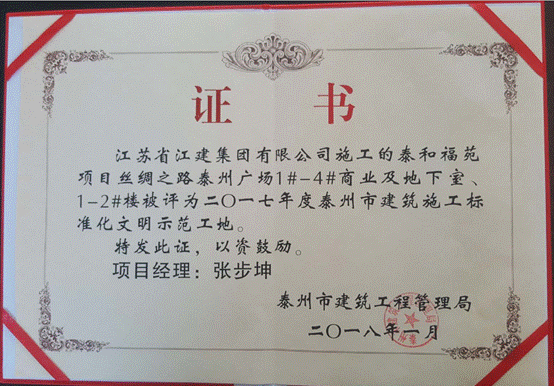 证 书
江苏省江建集团有限公司施工的泰和福苑
项目丝绸之路泰州广场1#-4#商业及地下室、
1-2#楼被评为二〇一七年度泰州市建筑施工标
准化文明示范工地。
特发此证，以资鼓励。
项目经理：张步坤
泰州市建筑工程管理局
二〇一八年一月